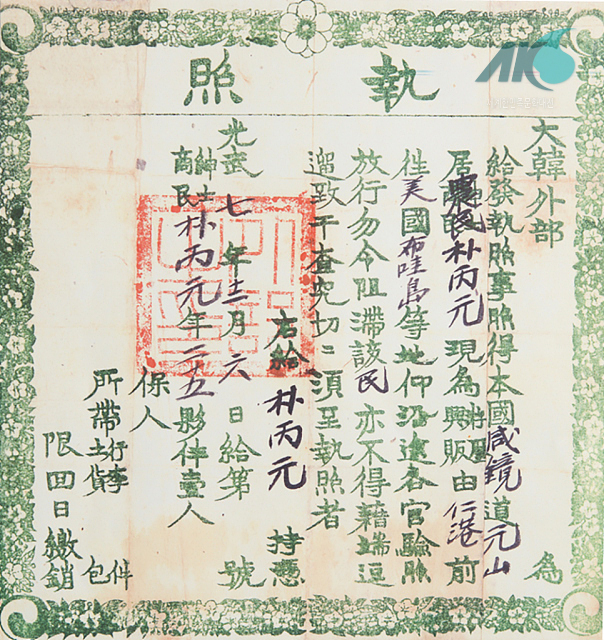 執照
大韓外部 為
給發執照事照得本國咸鏡道元山
居 朴丙元 現為 興販由仁港前
往美國布哇島等地仰沿途各官驗照
放行勿令阻滯該民亦不得藉端逗
遛致干查究切〻須至執照者
右給 朴丙元 持憑
光武七年十二月六日給第 號
紳士商民朴丙元年 五 夥伴壹人
保人
所帶行李土貨 件包
限回日繳銷